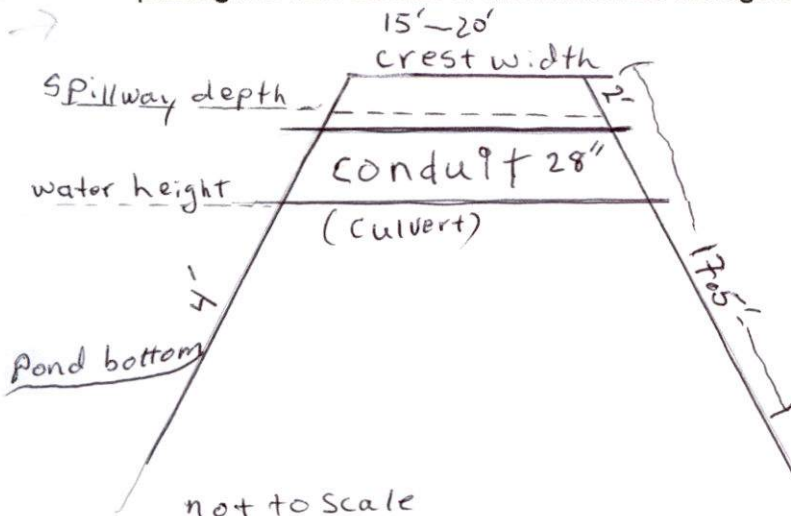 15'-20'
crest width
Spillway depth
2'
conduit 28"
water height
(culvert)
4'
17.5'
Pond bottom
not to scale